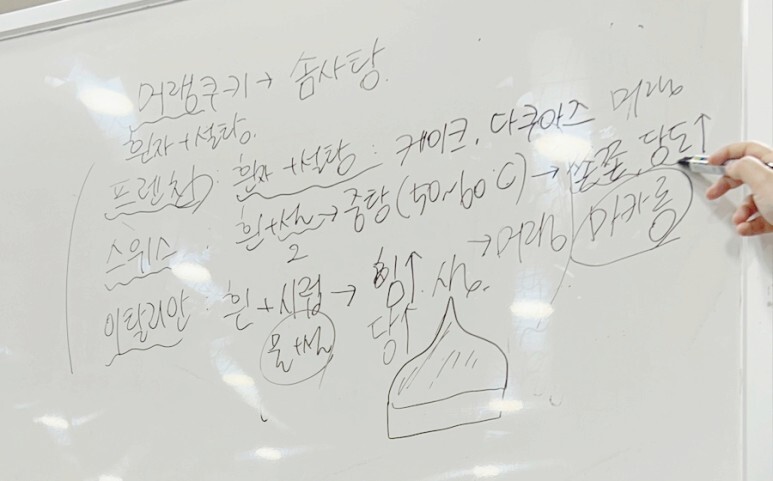 머랭쿠키 → 솜사탕.
흰자+설탕.
프렌치 : 흰자+설탕 : 케이크, 다쿠아즈 머랭
스위스 : 흰+설 → 중탕(50~60℃) → 쫀쫀, 당도↑
2
→ 머랭 마카롱
이탈리안 : 흰+시럽 → 힘↑.
물+설 당↑